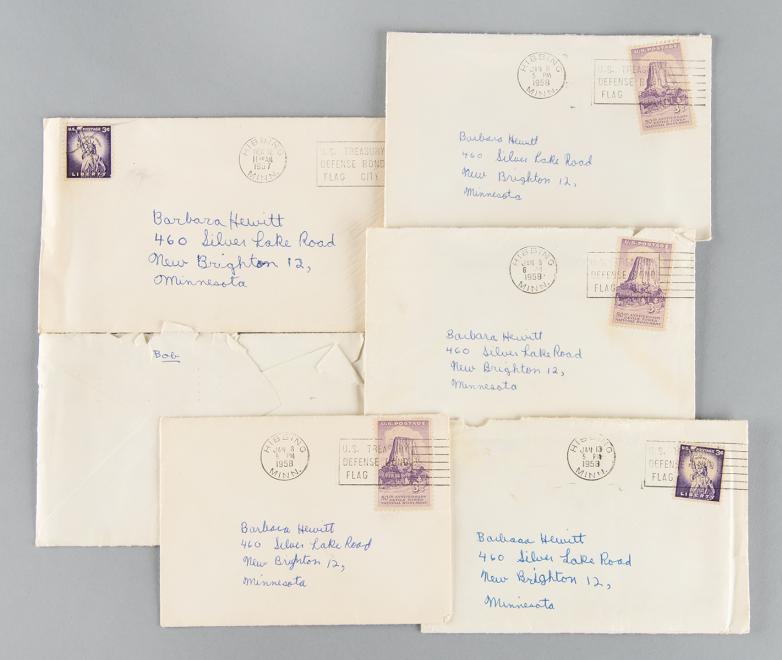 U.S. POSTAGE 3¢
LIBERTY
HIBBING
11 AM
1957
MINN.
U.S. TREASURY
DEFENSE BOND
FLAG CITY
Barbara Hewitt
460 Silver Lake Road
New Brighton 12,
Minnesota
Bob
HIBBING
JAN 8
5 PM
1958
MINN.
U.S. TREASU
DEFENSE BO
FLAG
U.S. POSTAGE
50TH ANNIVERSARY
DEVILS TOWER
NATIONAL MONUMENT
3¢
Barbara Hewitt
460 Silver Lake Road
New Brighton 12,
Minnesota
HIBBING
JAN
6
1958
MINN.
DEFENSE BOND
FLAG
U.S. POSTAGE
50TH ANNIVERSARY
DEVILS TOWER
NATIONAL MONUMENT
3¢
Barbara Hewitt
460 Silver Lake Road
New Brighton 12,
Minnesota
HIBBING
JAN 8
5 PM
1958
MINN.
U.S. TREAS
DEFENSE BOND
FLAG
U.S. POSTAGE
50TH ANNIVERSARY
DEVILS TOWER
NATIONAL MONUMENT
3¢
Barbara Hewitt
460 Silver Lake Road
New Brighton 12,
Minnesota
HIBBING
JAN 13
5 PM
1958
MINN.
U.S.
DEFENSE
FLAG
U.S. POSTAGE 3¢
LIBERTY
Barbara Hewitt
460 Silver Lake Road
New Brighton 12,
Minnesota